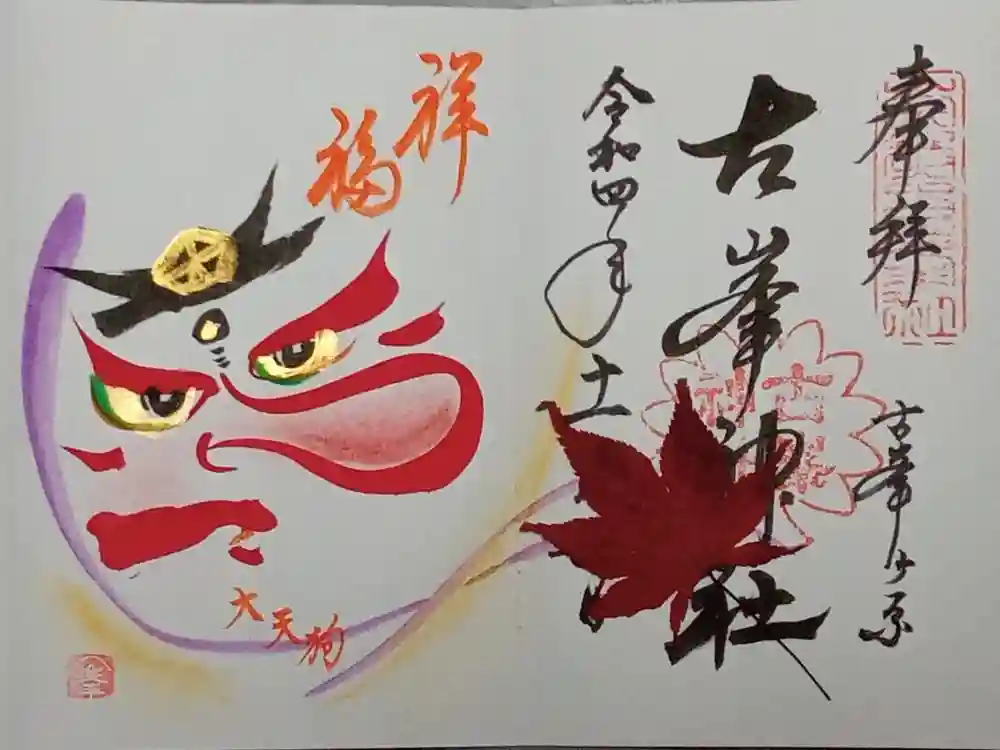 奉拝
古峯ヶ原
古峯神社
令和四年十一
祥福
大天狗